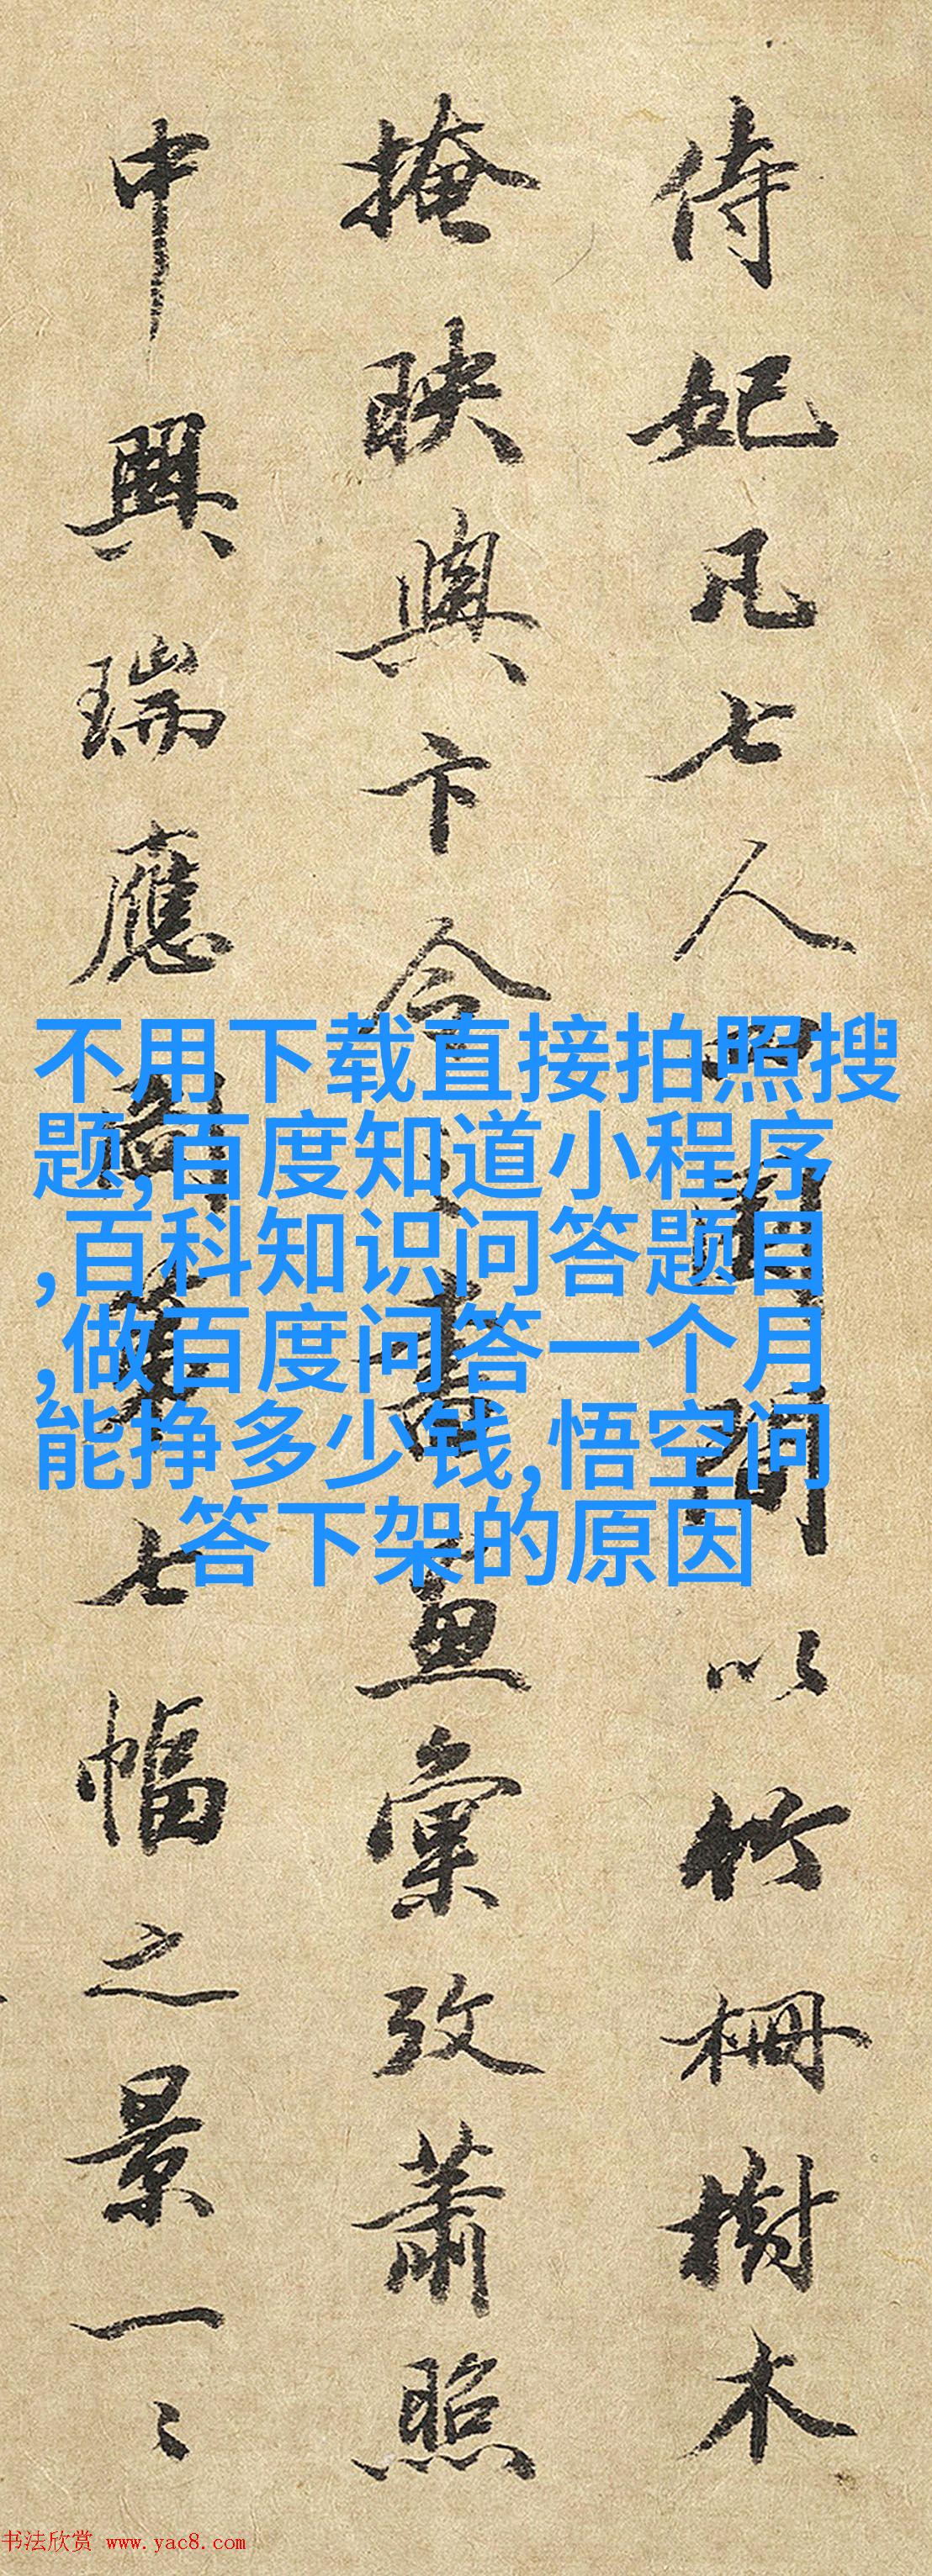 侍妃凡七人
間以竹栅樹木
掩映與卞令
書畫彙攷蕭照
中興瑞應圖
七幅之景一ミ
不用下载直接拍照搜
题,百度知道小程序
,百科知识问答题目
,做百度问答一个月
能挣多少钱,悟空问
答下架的原因
书法欣赏 www.yac8.com